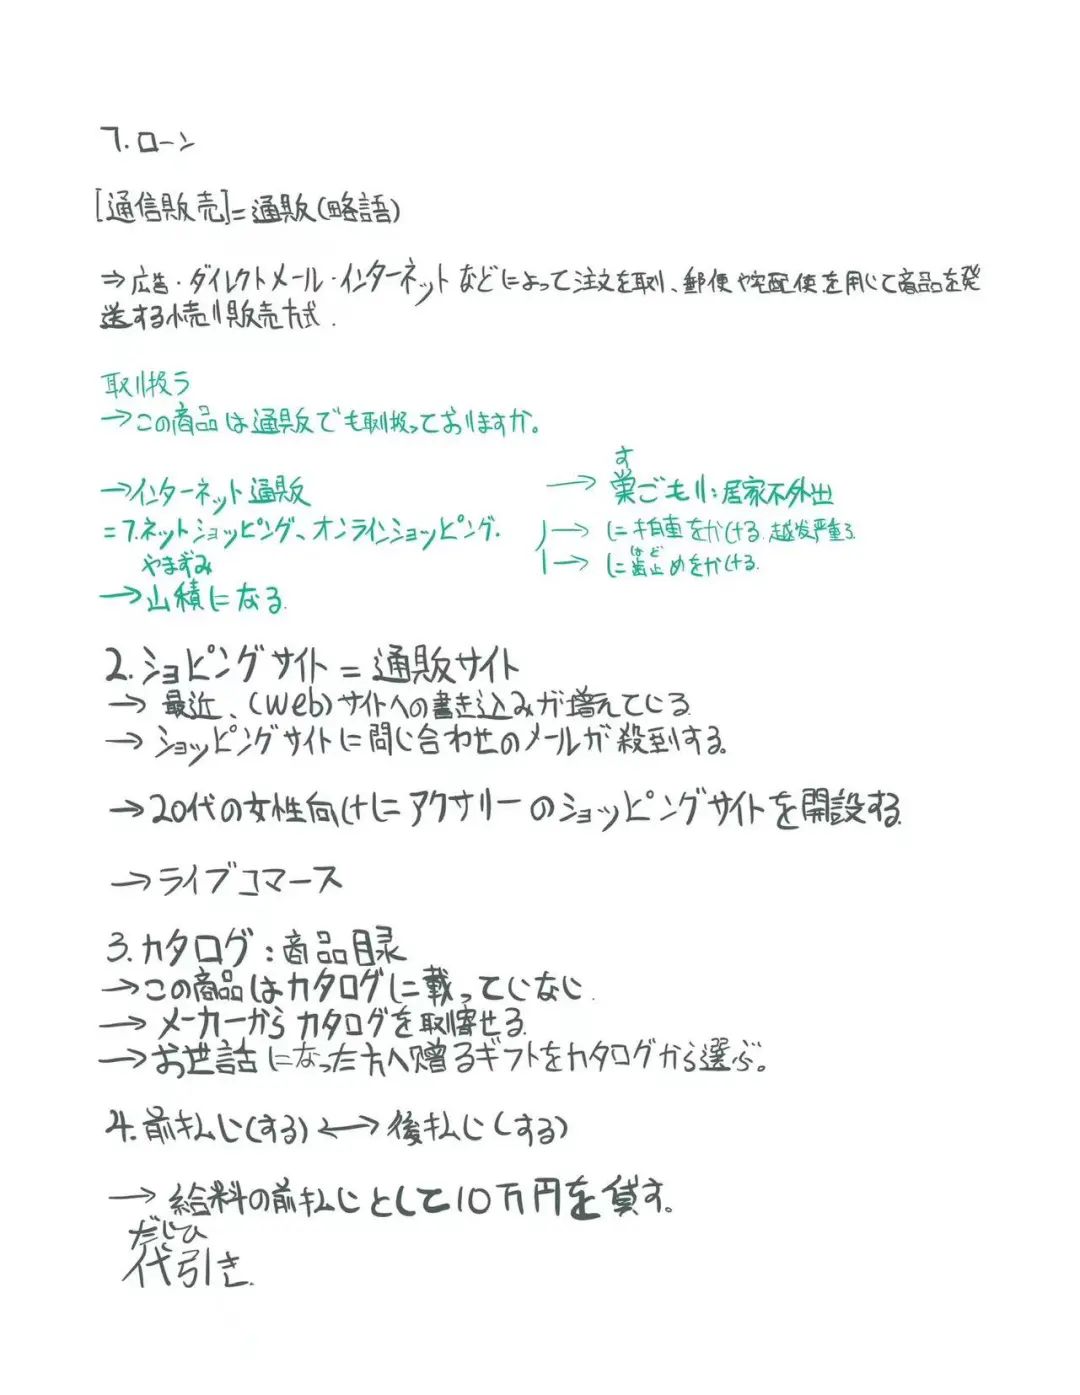 7. ローン
[通信販売]=通販(略語)
⇒ 広告・ダイレクトメール・インターネットなどによって注文を取り、郵便や宅配便を用じて商品を発
送する小売り販売方式.
取り扱う
→この商品は通販でも取り扱っておりますか。
→インターネット通販
=7.ネットショッピング、オンラインショッピング.
やまずみ
→山積になる.
す
→ 巣ごもり:居家不外出
→ に拍車をかける.越发严重了.
はど
→ に歯止めをかける.
2.ショピングサイト=通販サイト
→ 最近、(Web)サイトへの書き込みが増えている.
→ ショッピングサイトに問い合わせのメールが殺到する.
→20代の女性向けにアクサリーのショッピングサイトを開設する.
→ライブコマース
3.カタログ:商品目录
→この商品はカタログに載っていない.
→ メーカーからカタログを取寄せる.
→お世話になった方へ贈るギフトをカタログから選ぶ。
4.前払い(する)←→後払い(する)
→ 給料の前払いとして10万円を貸す。
だいひ
代引き.